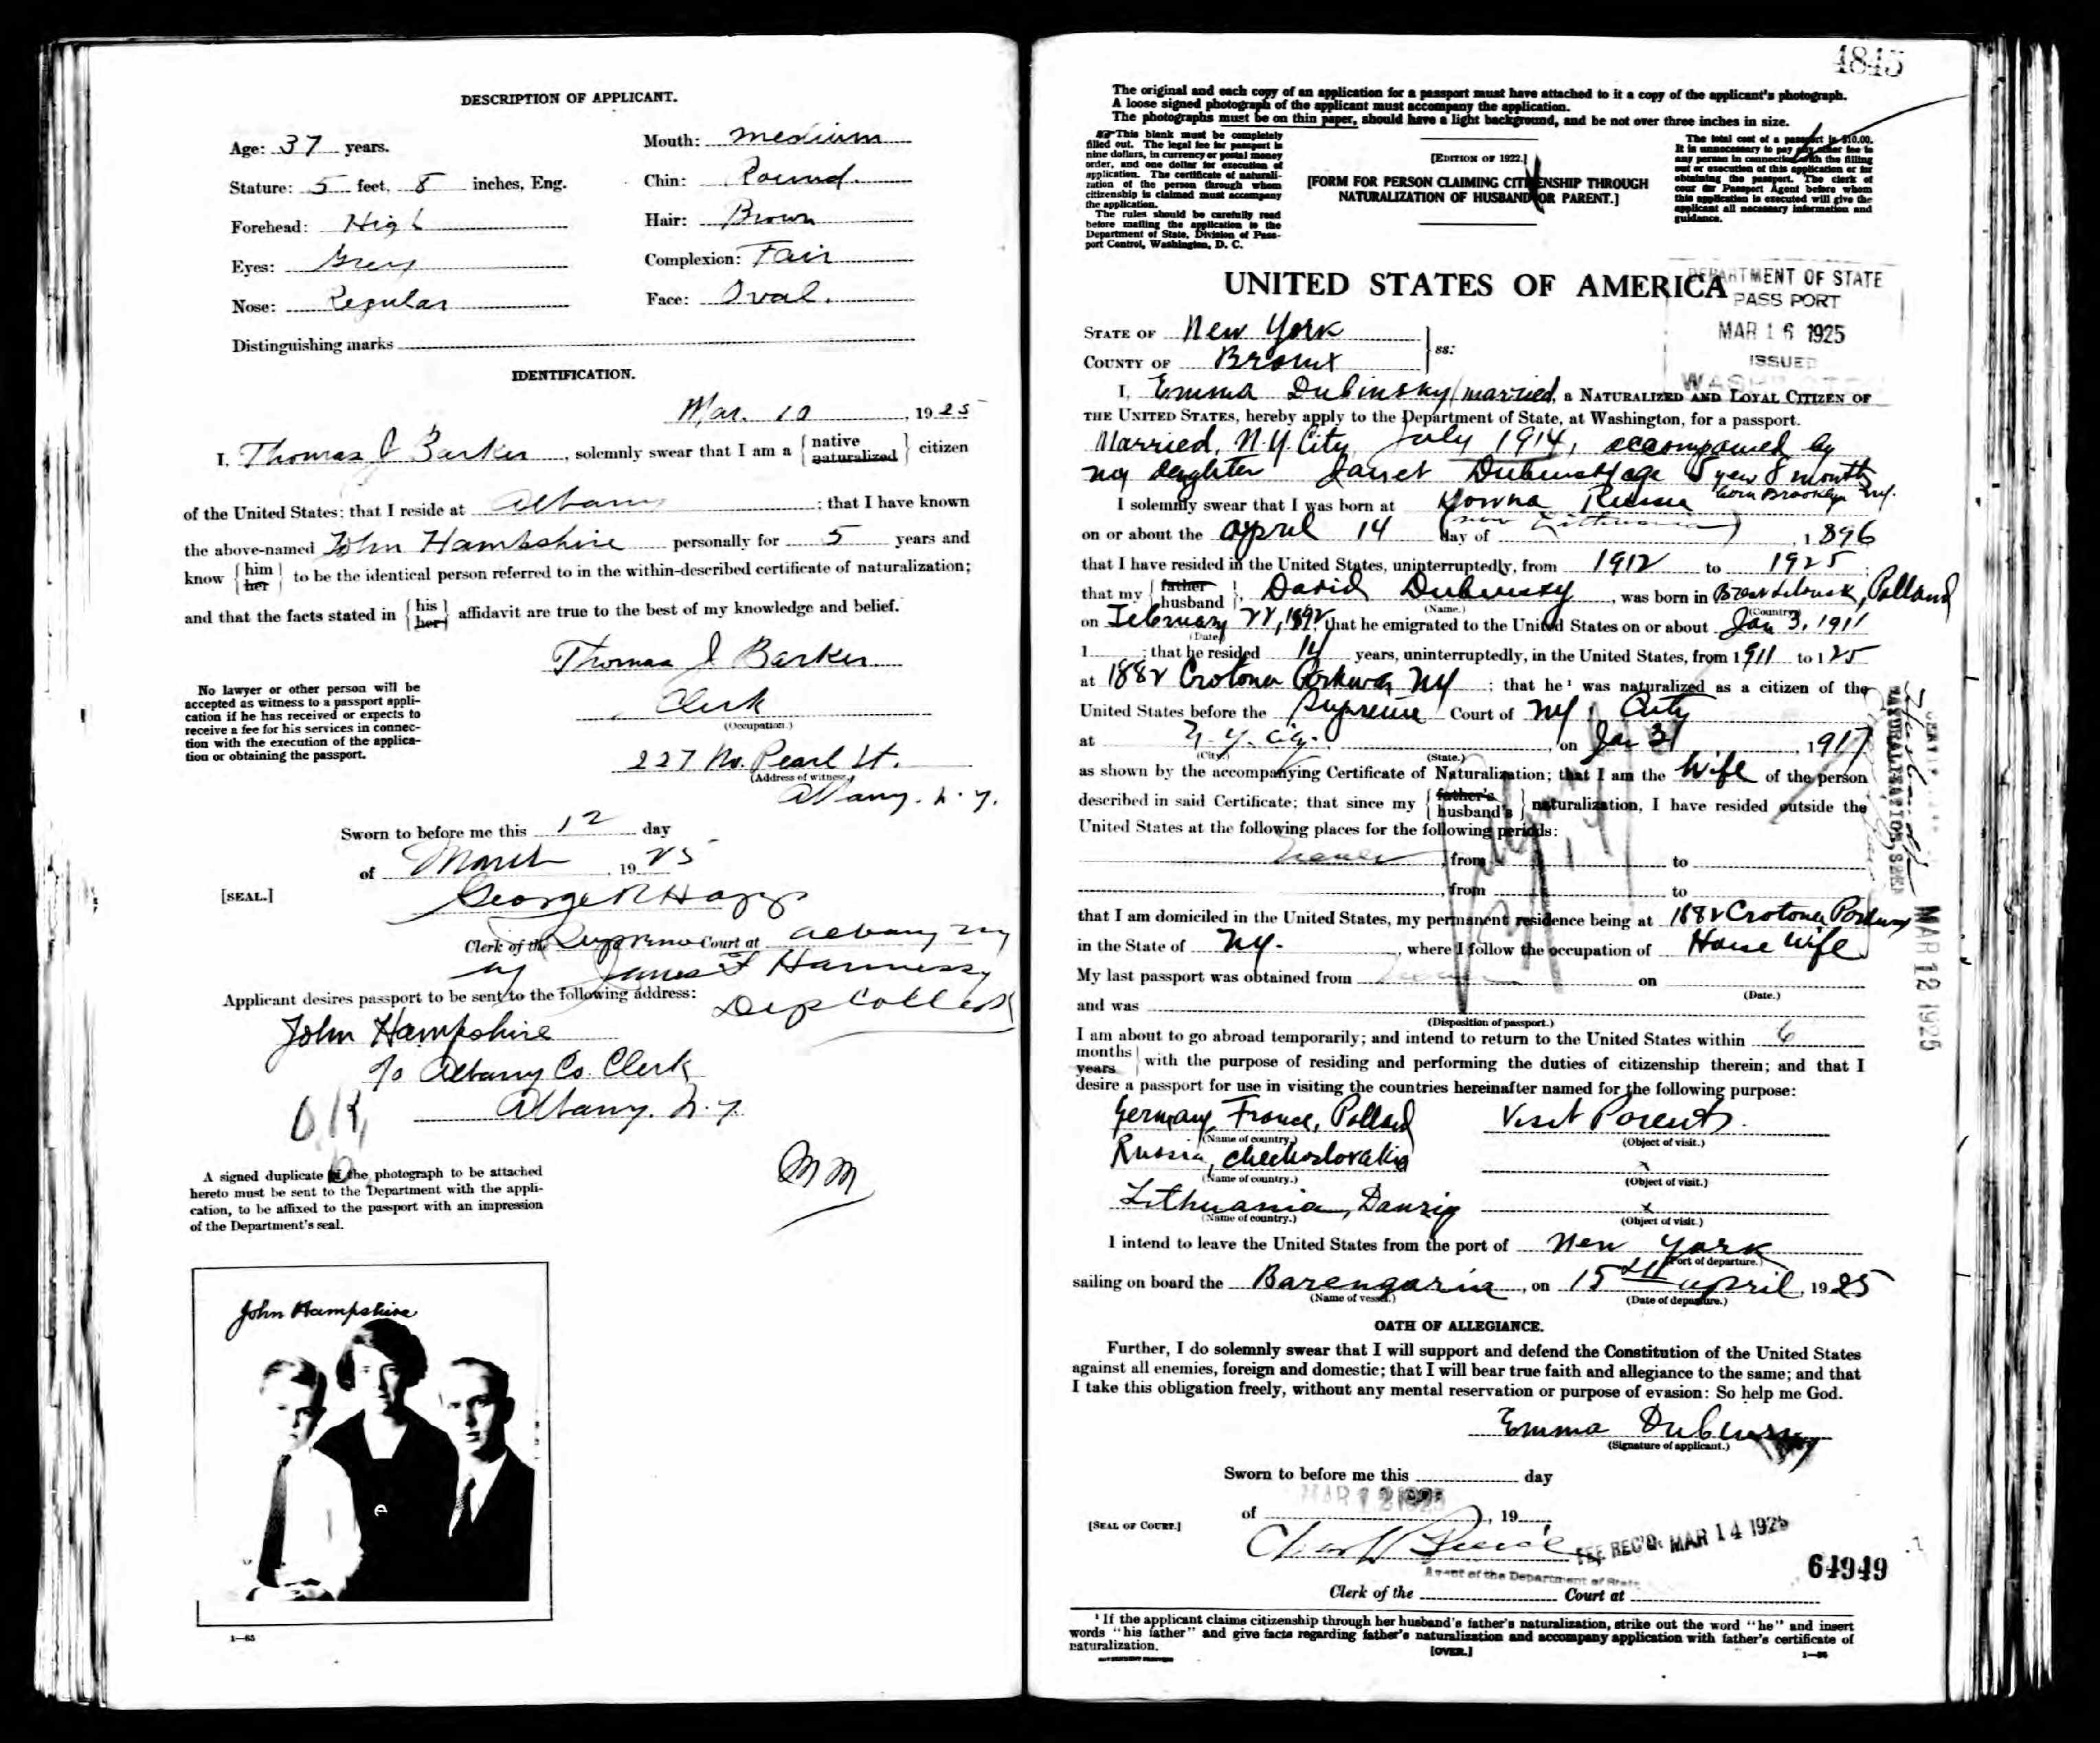 DESCRIPTION OF APPLICANT.
Age: 37 years.
Mouth: medium
Stature: 5 feet, 8 inches, Eng.
Chin: Round.
Forehead: High
Hair: Brown
Eyes: Grey
Complexion: Fair
Nose: Regular
Face: Oval.
Distinguishing marks
IDENTIFICATION.
Mar. 10, 1925
I, Thomas J Barker, solemnly swear that I am a { native naturalized } citizen
of the United States; that I reside at Albany; that I have known
the above-named John Hampshire personally for 5 years and
know { him her } to be the identical person referred to in the within-described certificate of naturalization;
and that the facts stated in { his her } affidavit are true to the best of my knowledge and belief.
Thomas J Barker
No lawyer or other person will be
accepted as witness to a passport appli-
cation if he has received or expects to
receive a fee for his services in connec-
tion with the execution of the applica-
tion or obtaining the passport.
Clerk
(Occupation.)
227 No. Pearl St.
(Address of witness.)
Albany. N.Y.
Sworn to before me this 12 day
of March, 1925
[SEAL.]
Clerk of the Supreme Court at Albany NY
by James F Hennessy
Applicant desires passport to be sent to the following address:
John Hampshire
c/o Albany Co. Clerk
Albany. N.Y.
O.K.
MM
A signed duplicate of the photograph to be attached
hereto must be sent to the Department with the appli-
cation, to be affixed to the passport with an impression
of the Department's seal.
John Hampshire
1—65
4845
The original and each copy of an application for a passport must have attached to it a copy of the applicant's photograph.
A loose signed photograph of the applicant must accompany the application.
The photographs must be on thin paper, should have a light background, and be not over three inches in size.
This blank must be completely
filled out. The legal fee for passport is
nine dollars, in currency or postal money
order, and one dollar for execution of
application. The certificate of naturali-
zation of the person through whom
citizenship is claimed must accompany
the application.
The rules should be carefully read
before mailing the application to the
Department of State, Division of Pass-
port Control, Washington, D. C.
[EDITION OF 1922.]
[FORM FOR PERSON CLAIMING CITIZENSHIP THROUGH
NATURALIZATION OF HUSBAND OR PARENT.]
The total cost of a passport is $10.00.
It is unnecessary to pay any other fee to
any person in connection with the filling
out or execution of this application or for
obtaining the passport. The clerk of
court or Passport Agent before whom
this application is executed will give the
applicant all necessary information and
guidance.
UNITED STATES OF AMERICA
DEPARTMENT OF STATE
PASSPORT
MAR 16 1925
ISSUED
WASHINGTON
STATE OF New York
COUNTY OF Bronx
ss:
I, Emma Dubinsky married, a NATURALIZED AND LOYAL CITIZEN OF
THE UNITED STATES, hereby apply to the Department of State, at Washington, for a passport.
Married, N.Y. City July 1914, accompanied by
my daughter Janet Dubinsky age 5 year 8 months
born Brooklyn N.Y.
I solemnly swear that I was born at Kowna Russia
(now Lithuania)
on or about the April 14 day of, 1896
that I have resided in the United States, uninterruptedly, from 1912 to 1925;
that my { father husband }, David Dubinsky, was born in Brest Litovsk, Polland
(Name.) (Country.)
on February 22, 1892 that he emigrated to the United States on or about Jan 3, 1911
(Date.)
1; that he resided 14 years, uninterruptedly, in the United States, from 1911 to 125
at 1882 Crotona Parkway NY; that he¹ was naturalized as a citizen of the
United States before the Supreme Court of NY City
at N.Y. City, on Jan 31, 1917
(City.) (State.)
as shown by the accompanying Certificate of Naturalization; that I am the Wife of the person
described in said Certificate; that since my { father's husband's } naturalization, I have resided outside the
United States at the following places for the following periods:
, from to
, from to
that I am domiciled in the United States, my permanent residence being at 1882 Crotona Parkway
in the State of NY., where I follow the occupation of House Wife
My last passport was obtained from on
(Date.)
and was
(Disposition of passport.)
I am about to go abroad temporarily; and intend to return to the United States within 6
months years } with the purpose of residing and performing the duties of citizenship therein; and that I
desire a passport for use in visiting the countries hereinafter named for the following purpose:
Germany, France, Polland Visit Parents.
(Name of country.) (Object of visit.)
Russia, Checkoslovakia x
(Name of country.) (Object of visit.)
Lithuania, Danzig x
(Name of country.) (Object of visit.)
I intend to leave the United States from the port of New York
(Port of departure.)
sailing on board the Barengaria, on 15th April, 1925
(Name of vessel.) (Date of departure.)
OATH OF ALLEGIANCE.
Further, I do solemnly swear that I will support and defend the Constitution of the United States
against all enemies, foreign and domestic; that I will bear true faith and allegiance to the same; and that
I take this obligation freely, without any mental reservation or purpose of evasion: So help me God.
Emma Dubinsky
(Signature of applicant.)
Sworn to before me this day
MAR 12 1925
of, 19
[SEAL OF COURT.]
FEE REC'D. MAR 14 1925
Agent of the Department of State
64949
Clerk of the Court at
¹ If the applicant claims citizenship through her husband's father's naturalization, strike out the word "he" and insert
words "his father" and give facts regarding father's naturalization and accompany application with father's certificate of
naturalization.
[OVER.]
NATURALIZATION SEEN
MAR 12 1925